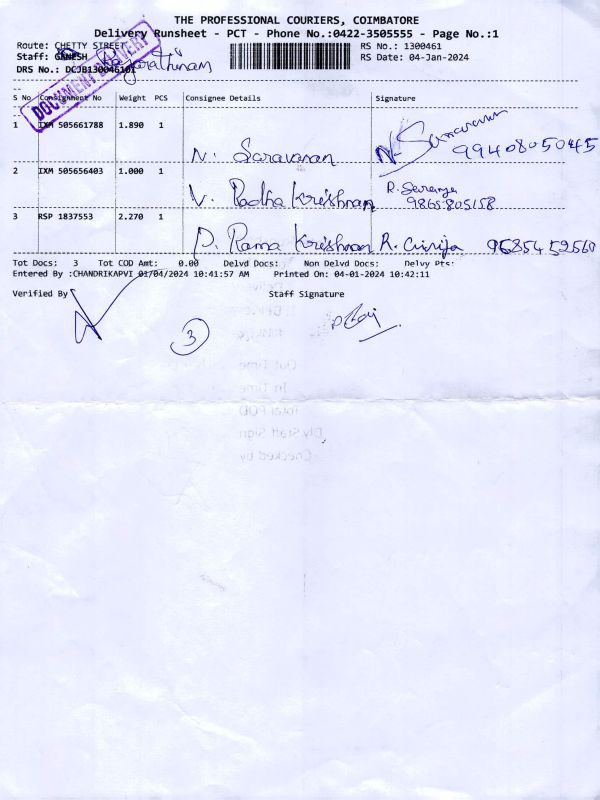 THE PROFESSIONAL COURIERS, COIMBATORE
Delivery Runsheet - PCT - Phone No.:0422-3505555 - Page No.:1
Route: CHETTY STREET
RS No.: 1300461
Staff: GANESH
RS Date: 04-Jan-2024
DRS No.: DCJB13004610
DOCUMENT DELIVERY
S No Consignment No Weight PCS Consignee Details Signature
1 IXM 505661788 1.890 1
N. Saravanan N. Saravanan 9940805045
2 IXM 505656403 1.000 1
V. Radha Krishnan R. Saranya
9865805158
3 RSP 1837553 2.270 1
P. Rama Krishnan R. Girija 9585459560
Tot Docs: 3 Tot COD Amt: 0.00 Delvd Docs: Non Delvd Docs: Delvy Pts:
Entered By :CHANDRIKAPVI 01/04/2024 10:41:57 AM Printed On: 04-01-2024 10:42:11
Verified By Staff Signature
3
Out Time
In Time
Total POD
Dlv Staff Sign
Checked by